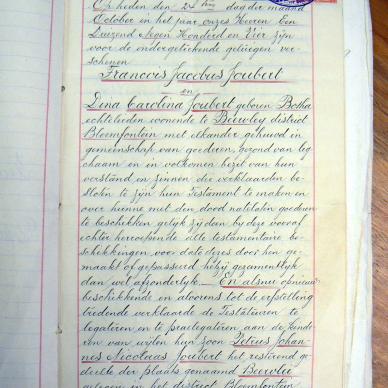 Op heden den 24 sten dag der maand
October in het jaar onzes Heeren Een
Duizend Negen Honderd en Vier zijn
voor de ondergetekende getuigen ver-
schenen
Francois Jacobus Joubert
en
Dina Carolina Joubert geboren Botha
echtelieden woonende te Beerwley district
Bloemfontein met elkander gehuwd in
gemeenschap van goederen, gezond van lig-
chaam en in volkomen bezit van hun
verstand en zinnen die verklaarden be-
sloten te zijn hun Testament te maken en
over hunne met den dood natelaten goederen
te beschikken gelijk zij doen bij deze vooraf
echter herroepende alle testamentaire be-
schikkingen voor date dezes door hen ge-
maakt of gepasseerd hetzij gezamentlyk
dan wel afzonderlyk. En alsnu opnieuw
beschikkende en alvorens tot de erfstelling
tredende verklaarde de Testateuren te
legateren en te praelegateren aan de kinde-
ren van wijlen hun zoon Petrus Johan-
nes Nicolaas Joubert het resterend ge-
deelte der plaats genaamd Beerwlei
gelegen in het district Bloemfontein